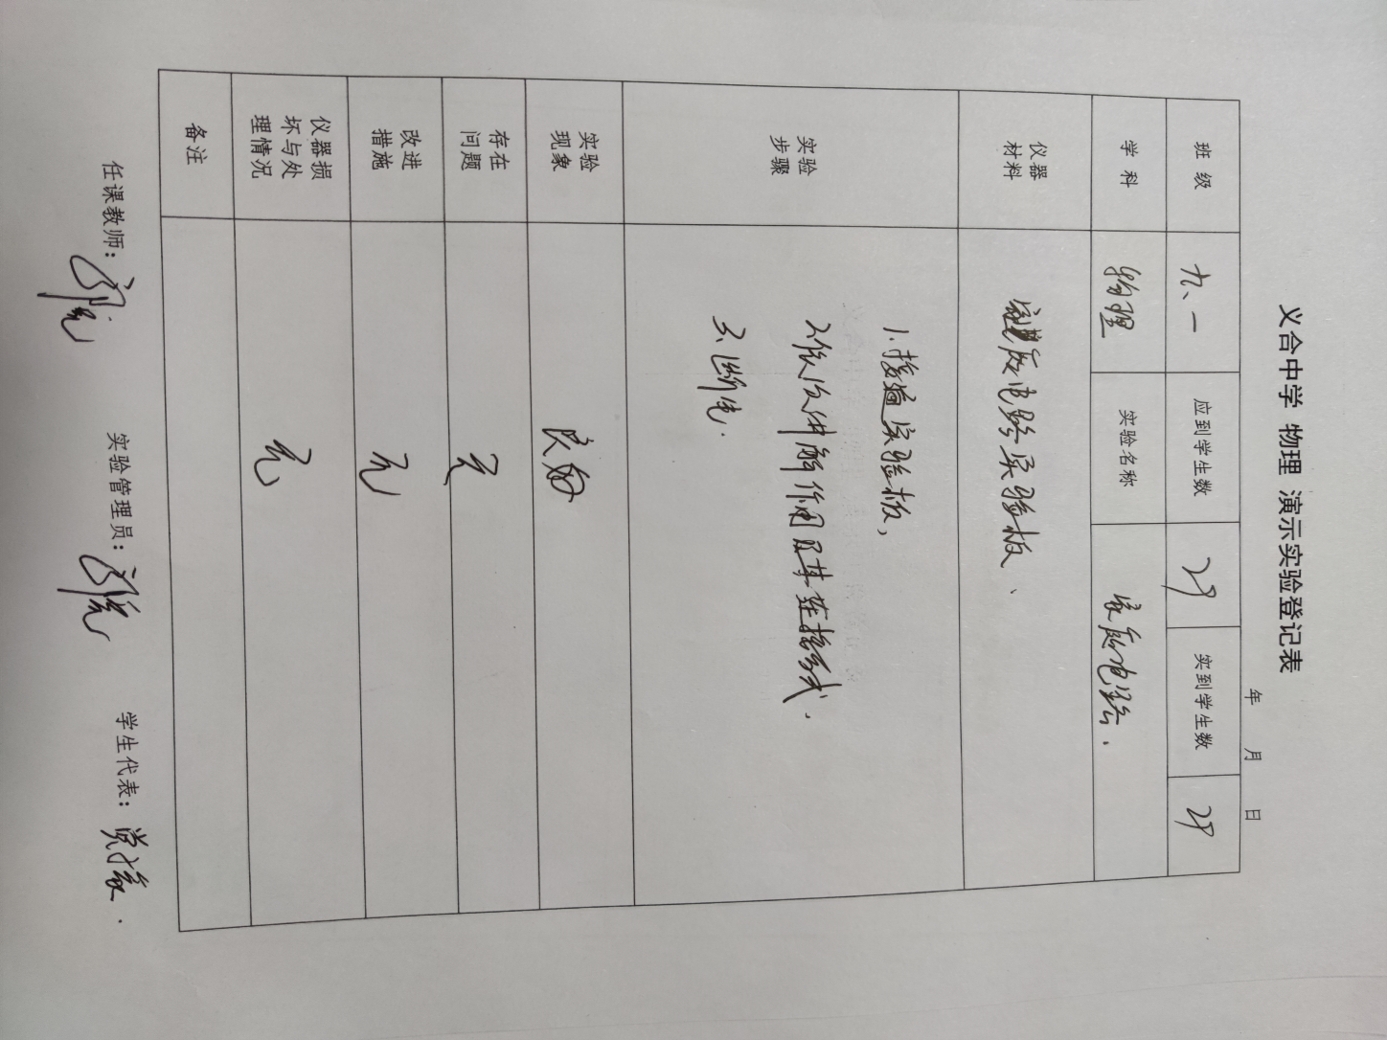 义合中学 物理 演示实验登记表
年 月 日
班 级 九、一 应到学生数 29 实到学生数 29
学 科 物理 实验名称 家庭电路.
仪器材料 家庭电路实验板、
实验步骤 1、接通实验板,
2、依次讲解作用及其连接方式.
3、断电.
实验现象 良好
存在问题 无
改进措施 无
仪器损坏与处理情况 无
备注
任课教师: 实验管理员: 学生代表: